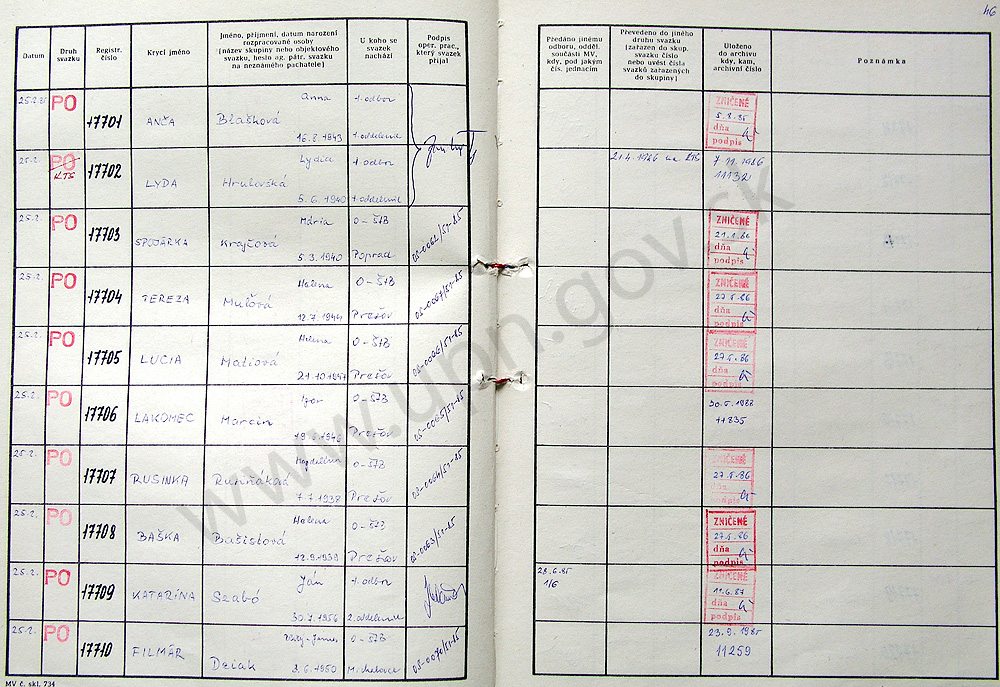 46
Datum
Druh svazku
Registr. číslo
Krycí jméno
Jméno, příjmení, datum narození
rozpracované osoby
(název skupiny nebo objektového
svazku, heslo ag. pátr. svazku
na neznámého pachatele)
U koho se
svazek
nachází
Podpis
oper. prac.,
který svazek
přijal
Předáno jinému
odboru, odděl.
součásti MV,
kdy, pod jakým
čís. jednacím
Převedeno do jiného
druhu svazku
(zařazen do skup.
svazku číslo
nebo uvést čísla
svazků zařazených
do skupiny)
Uloženo
do archivu
kdy, kam,
archivní číslo
Poznámka
25.2.85 PO 17701 ANČA Anna Blašková 16.8.1943 1. odbor 1. oddelenie
ZNIČENÉ 5.8.85 dňa podpis
25.2. PO KTS 17702 LYDA Lydia 5.6.1940 1. odbor 1. oddelenie
21.4.1986 na KTS 7.11.1986 11132
25.2. PO 17703 SPOJÁRKA Mária Krajčová 5.3.1940 O-ŠtB Poprad
ZNIČENÉ 21.1.86 dňa podpis
25.2. PO 17704 TEREZA Helena 12.7.1944 O-ŠtB Prešov
ZNIČENÉ 27.5.86 dňa podpis
25.2. PO 17705 LUCIA Helena Matiová O-ŠtB Prešov
ZNIČENÉ 27.5.86 dňa podpis
25.2. PO 17706 LAKOMEC Igor Marcin 19.6.1946 O-ŠtB Prešov
30.5.1988 11835
25.2. PO 17707 RUSINKA Magdaléna 7.7.1938 O-ŠtB Prešov
ZNIČENÉ 27.5.86 dňa podpis
25.2. PO 17708 BAŠKA Helena Bašistová 12.9.1939 O-ŠtB Prešov
ZNIČENÉ 27.5.86 dňa podpis
25.2. PO 17709 KATARÍNA Ján Szabó 30.7.1956 1. odbor 2. oddelenie
28.6.85 1/6 ZNIČENÉ 11.6.87 dňa podpis
25.2. PO 17710 FILMÁR Deiak 8.6.1950 O-ŠtB Michalovce
23.9.1985 11259
MV č. skl. 734
www.upn.gov.sk